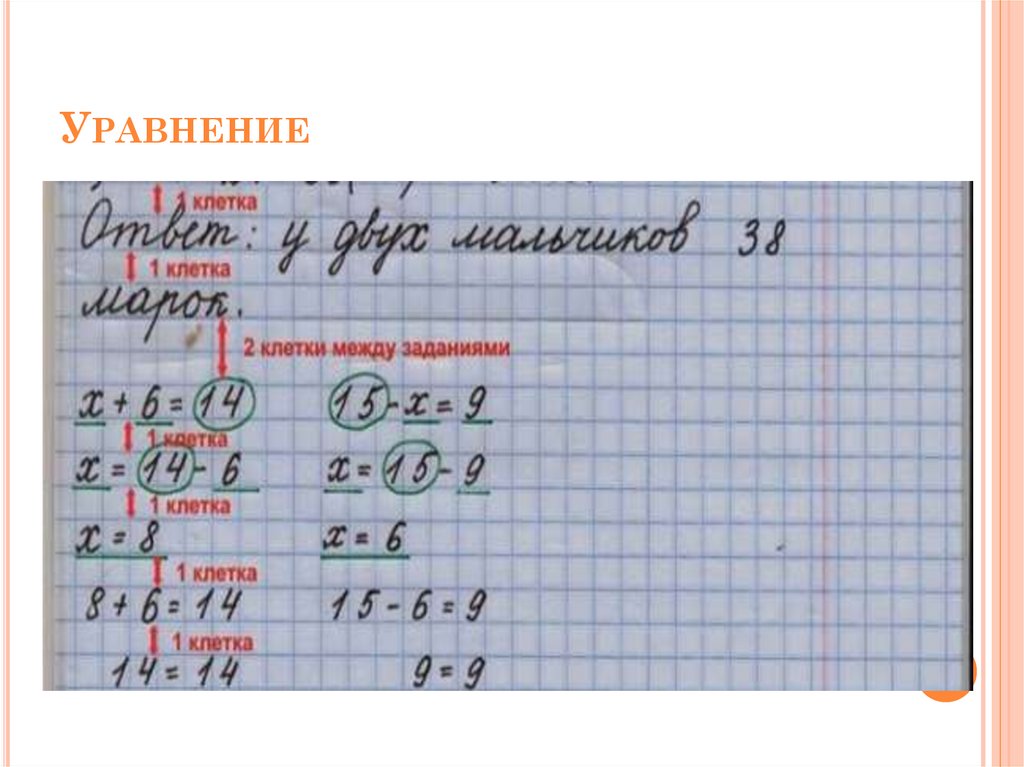 Уравнение
1 клетка
Ответ: у двух мальчиков 38
1 клетка
марок.
2 клетки между заданиями
x + 6 = 14 15 - x = 9
1 клетка
x = 14 - 6 x = 15 - 9
1 клетка
x = 8 x = 6
1 клетка
8 + 6 = 14 15 - 6 = 9
1 клетка
14 = 14 9 = 9